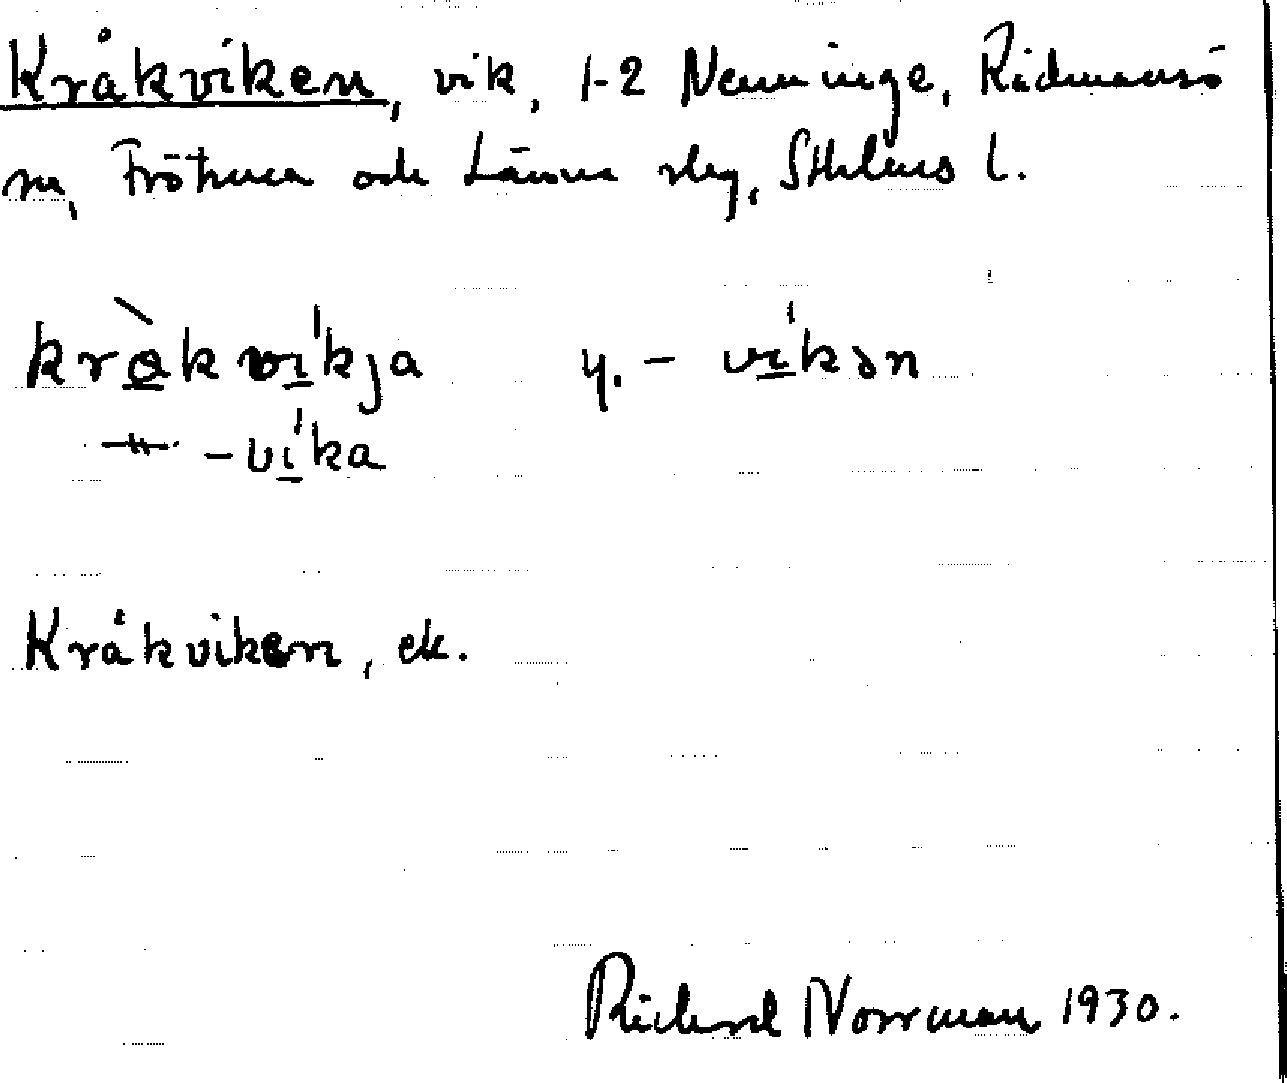 Kråkviken, vik, 1-2 Nenninge, Rådmansö
sn, Frötuna och Länna slg, Sthlms l.
krå̀kvíkja y. – víkən
–víka
Kråkviken, ek.
Richard Norrman 1930.